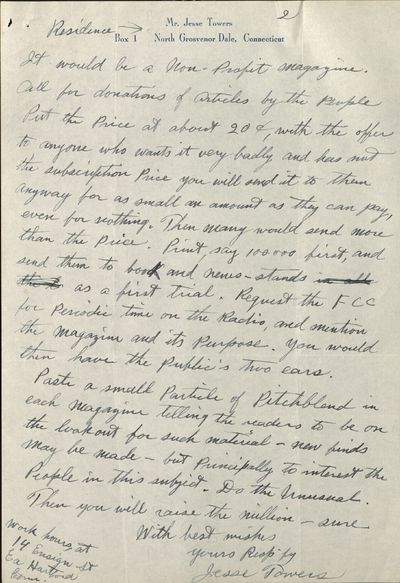 2
Mr. Jesse Towers
Residence → Box 1 North Grosvenor Dale, Connecticut
It would be a Non-Profit magazine.
Call for donations of articles by the People
Put the Price at about 20¢, with the offer
to anyone who wants it very badly and has not
the subscription Price you will send it to them
anyway for as small an amount as they can pay,
even for nothing. Then many would send more
than the Price. Print, say 100 000 first, and
send them to book and news-stands in all
as a first trial. Request the FCC
for Periodic time on the Radio, and mention
the magazine and its Purpose. You would
then have the Public's two ears.
Paste a small Particle of Pitchblend in
each magazine telling the readers to be on
the lookout for such material - new finds
may be made - but Principally to interest the
People in this subject. Do the Unusual.
Then you will raise the million - sure
With best wishes
yours Resp'fy
Jesse Towers
Work hours at
14 Ensign St
Ea Hartford
Conn.